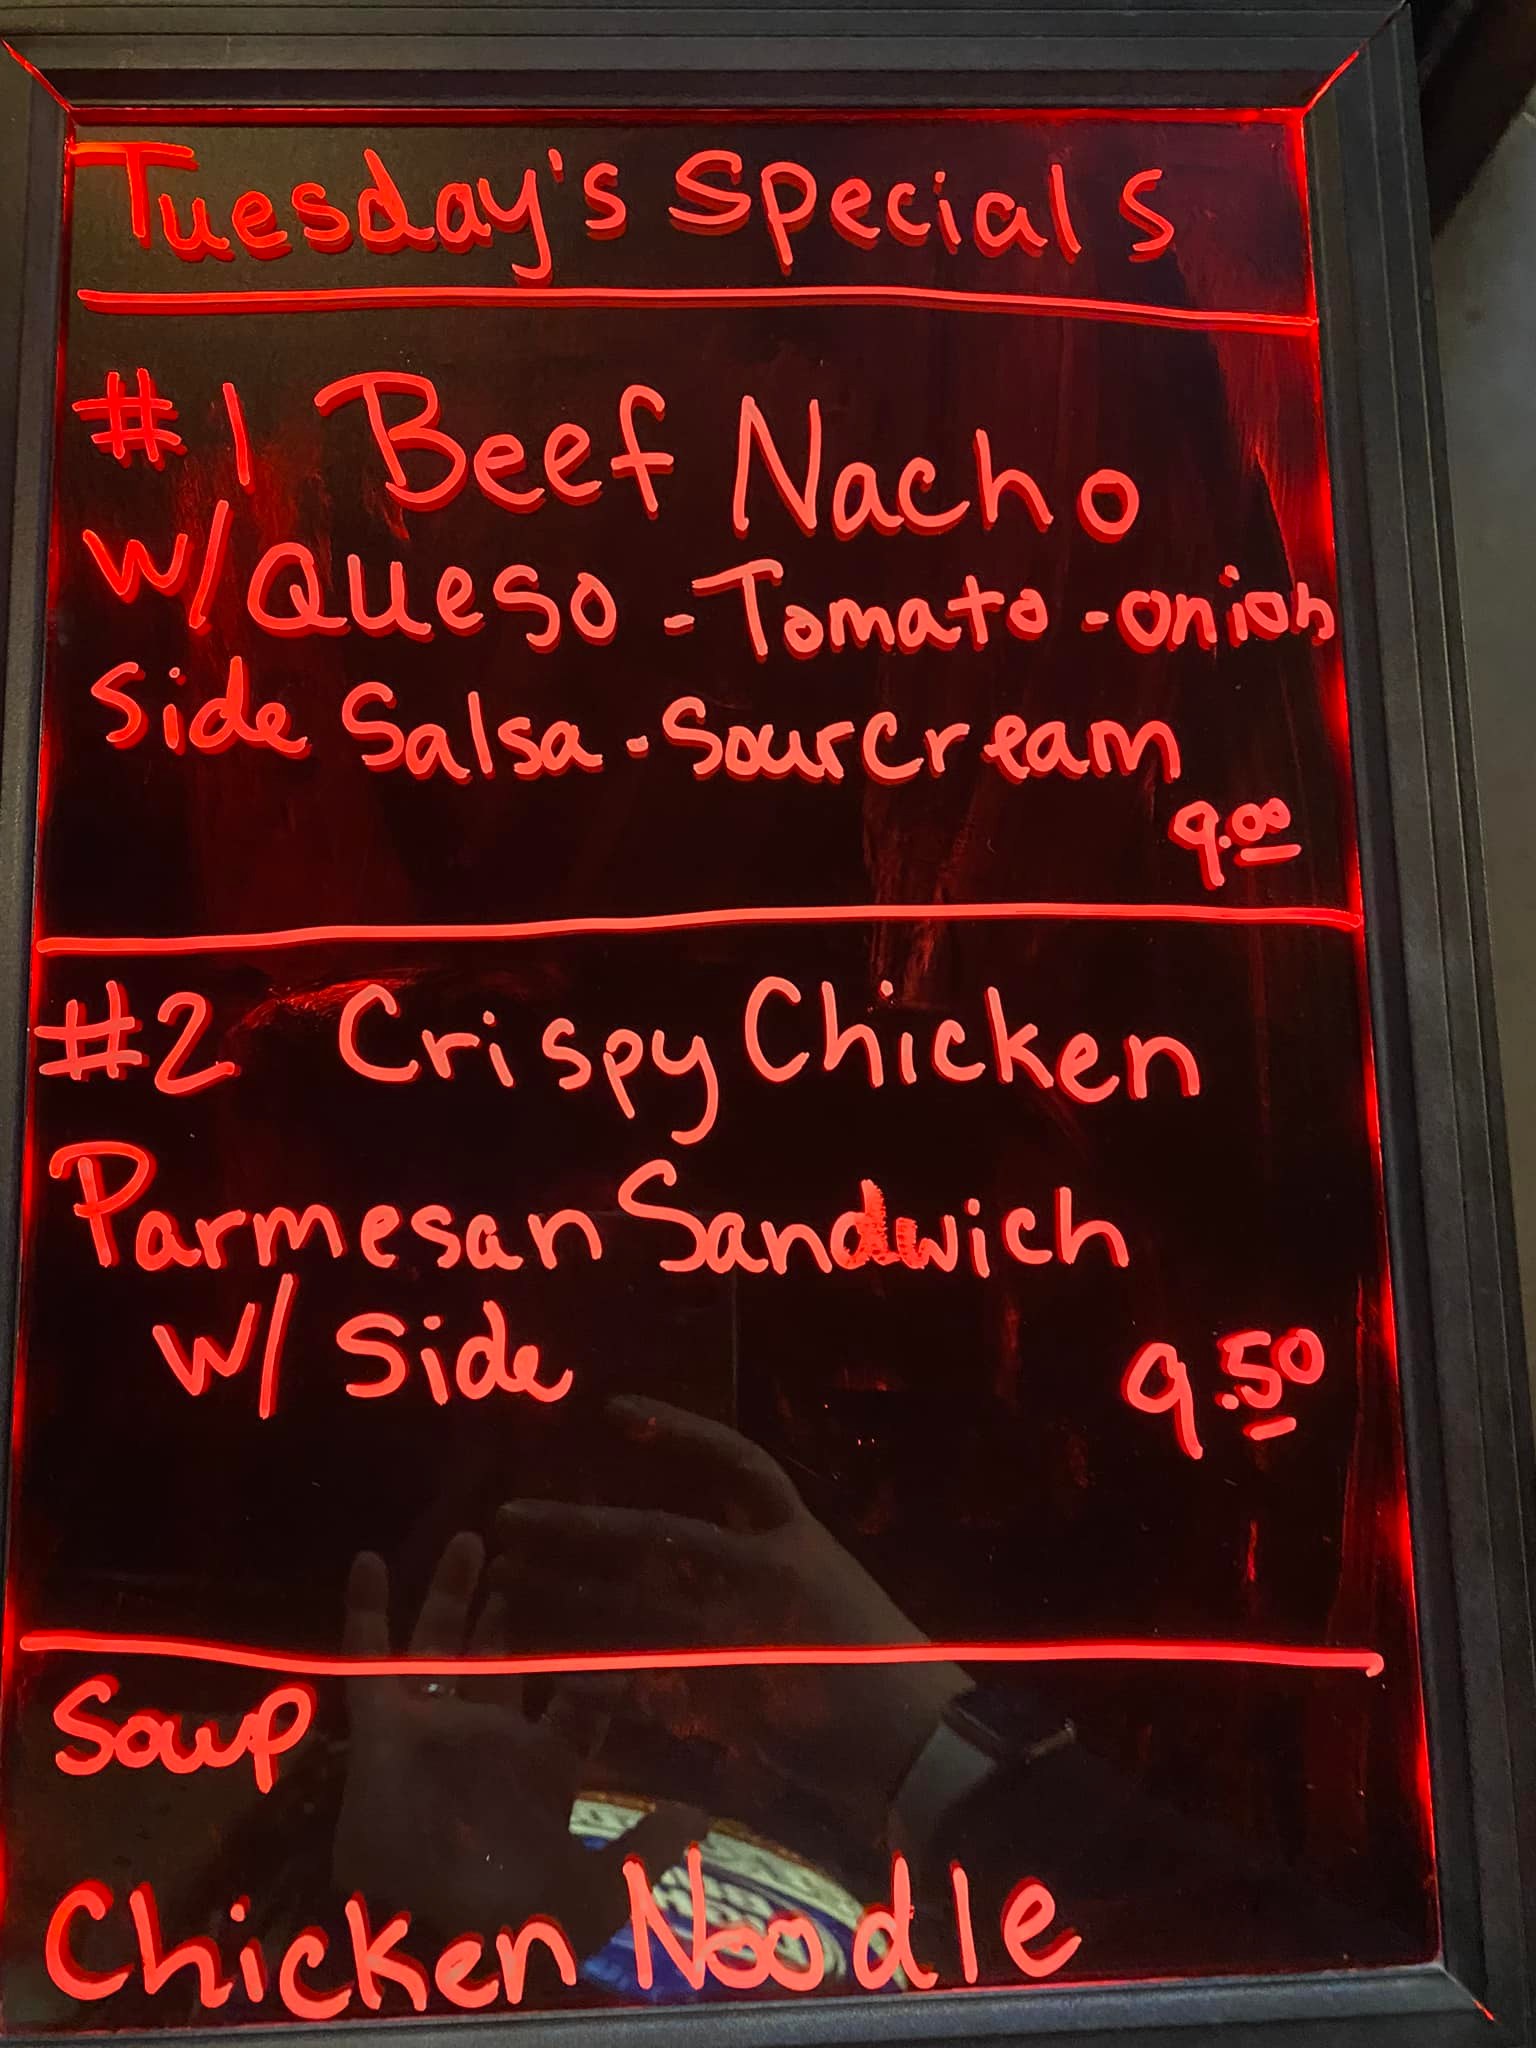 Tuesday's Specials
#1 Beef Nacho
w/Queso - Tomato - onion
Side Salsa - Sour Cream
9.00
#2 Crispy Chicken
Parmesan Sandwich
w/ Side 9.50
Soup
Chicken Noodle